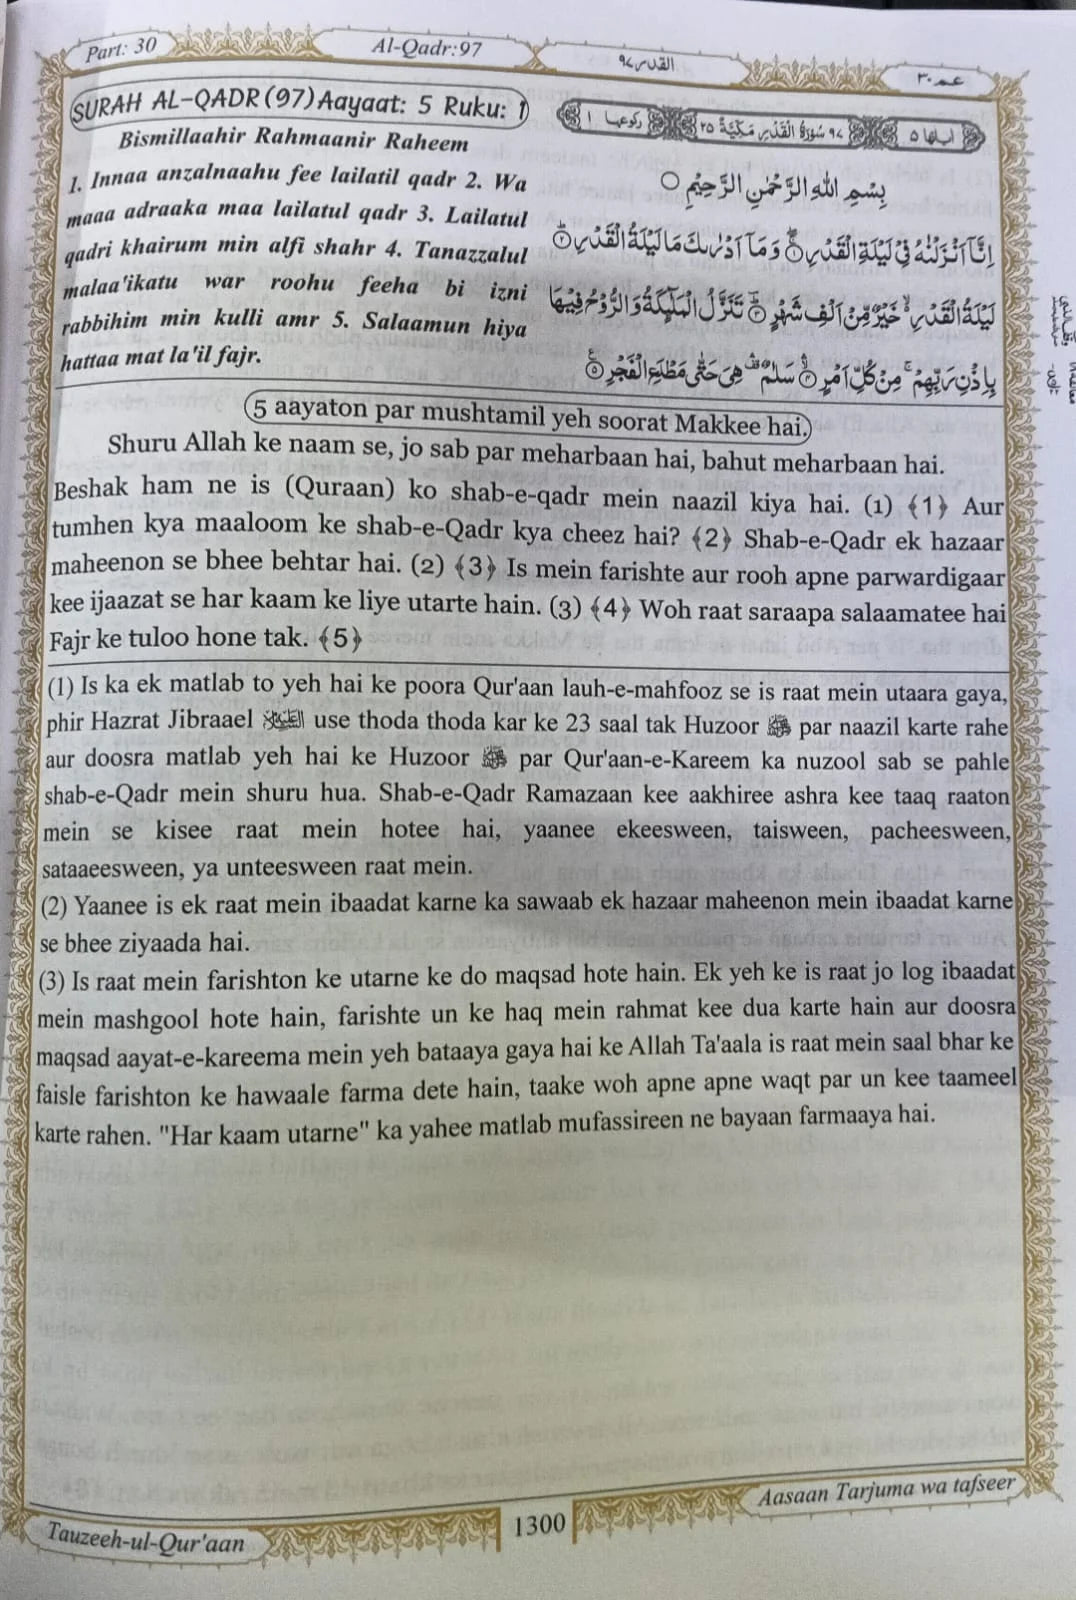 Part: 30
Al-Qadr:97
القدر ٩٧
عم ٣٠
SURAH AL-QADR (97) Aayaat: 5 Ruku: 1
Bismillaahir Rahmaanir Raheem
1. Innaa anzalnaahu fee lailatil qadr 2. Wa
maaa adraaka maa lailatul qadr 3. Lailatul
qadri khairum min alfi shahr 4. Tanazzalul
malaa'ikatu war roohu feeha bi izni
rabbihim min kulli amr 5. Salaamun hiya
hattaa mat la'il fajr.
اٰیاتها ٥ ٩٧ سُوْرَةُ الْقَدْرِ مَكِّيَّةٌ ٢٥ رکوعها ١
بِسْمِ اللّٰهِ الرَّحْمٰنِ الرَّحِيْمِ ○
اِنَّاۤ اَنْزَلْنٰهُ فِيْ لَيْلَةِ الْقَدْرِ ۝١ وَمَاۤ اَدْرٰىكَ مَا لَيْلَةُ الْقَدْرِ ۝٢
لَيْلَةُ الْقَدْرِ ۙ خَيْرٌ مِّنْ اَلْفِ شَهْرٍ ۝٣ تَنَزَّلُ الْمَلٰٓئِكَةُ وَالرُّوْحُ فِيْهَا
بِاِذْنِ رَبِّهِمْ ۚ مِنْ كُلِّ اَمْرٍ ۝٤ سَلٰمٌ ۛ هِيَ حَتّٰى مَطْلَعِ الْفَجْرِ ۝٥
5 aayaton par mushtamil yeh soorat Makkee hai.
Shuru Allah ke naam se, jo sab par meharbaan hai, bahut meharbaan hai.
Beshak ham ne is (Quraan) ko shab-e-qadr mein naazil kiya hai. (1) ﴾1﴿ Aur
tumhen kya maaloom ke shab-e-Qadr kya cheez hai? ﴾2﴿ Shab-e-Qadr ek hazaar
maheenon se bhee behtar hai. (2) ﴾3﴿ Is mein farishte aur rooh apne parwardigaar
kee ijaazat se har kaam ke liye utarte hain. (3) ﴾4﴿ Woh raat saraapa salaamatee hai
Fajr ke tuloo hone tak. ﴾5﴿
(1) Is ka ek matlab to yeh hai ke poora Qur'aan lauh-e-mahfooz se is raat mein utaara gaya,
phir Hazrat Jibraael use thoda thoda kar ke 23 saal tak Huzoor ﷺ par naazil karte rahe
aur doosra matlab yeh hai ke Huzoor ﷺ par Qur'aan-e-Kareem ka nuzool sab se pahle
shab-e-Qadr mein shuru hua. Shab-e-Qadr Ramazaan kee aakhiree ashra kee taaq raaton
mein se kisee raat mein hotee hai, yaanee ekeesween, taisween, pacheesween,
sataaeesween, ya unteesween raat mein.
(2) Yaanee is ek raat mein ibaadat karne ka sawaab ek hazaar maheenon mein ibaadat karne
se bhee ziyaada hai.
(3) Is raat mein farishton ke utarne ke do maqsad hote hain. Ek yeh ke is raat jo log ibaadat
mein mashgool hote hain, farishte un ke haq mein rahmat kee dua karte hain aur doosra
maqsad aayat-e-kareema mein yeh bataaya gaya hai ke Allah Ta'aala is raat mein saal bhar ke
faisle farishton ke hawaale farma dete hain, taake woh apne apne waqt par un kee taameel
karte rahen. "Har kaam utarne" ka yahee matlab mufassireen ne bayaan farmaaya hai.
Tauzeeh-ul-Qur'aan
1300
Aasaan Tarjuma wa tafseer